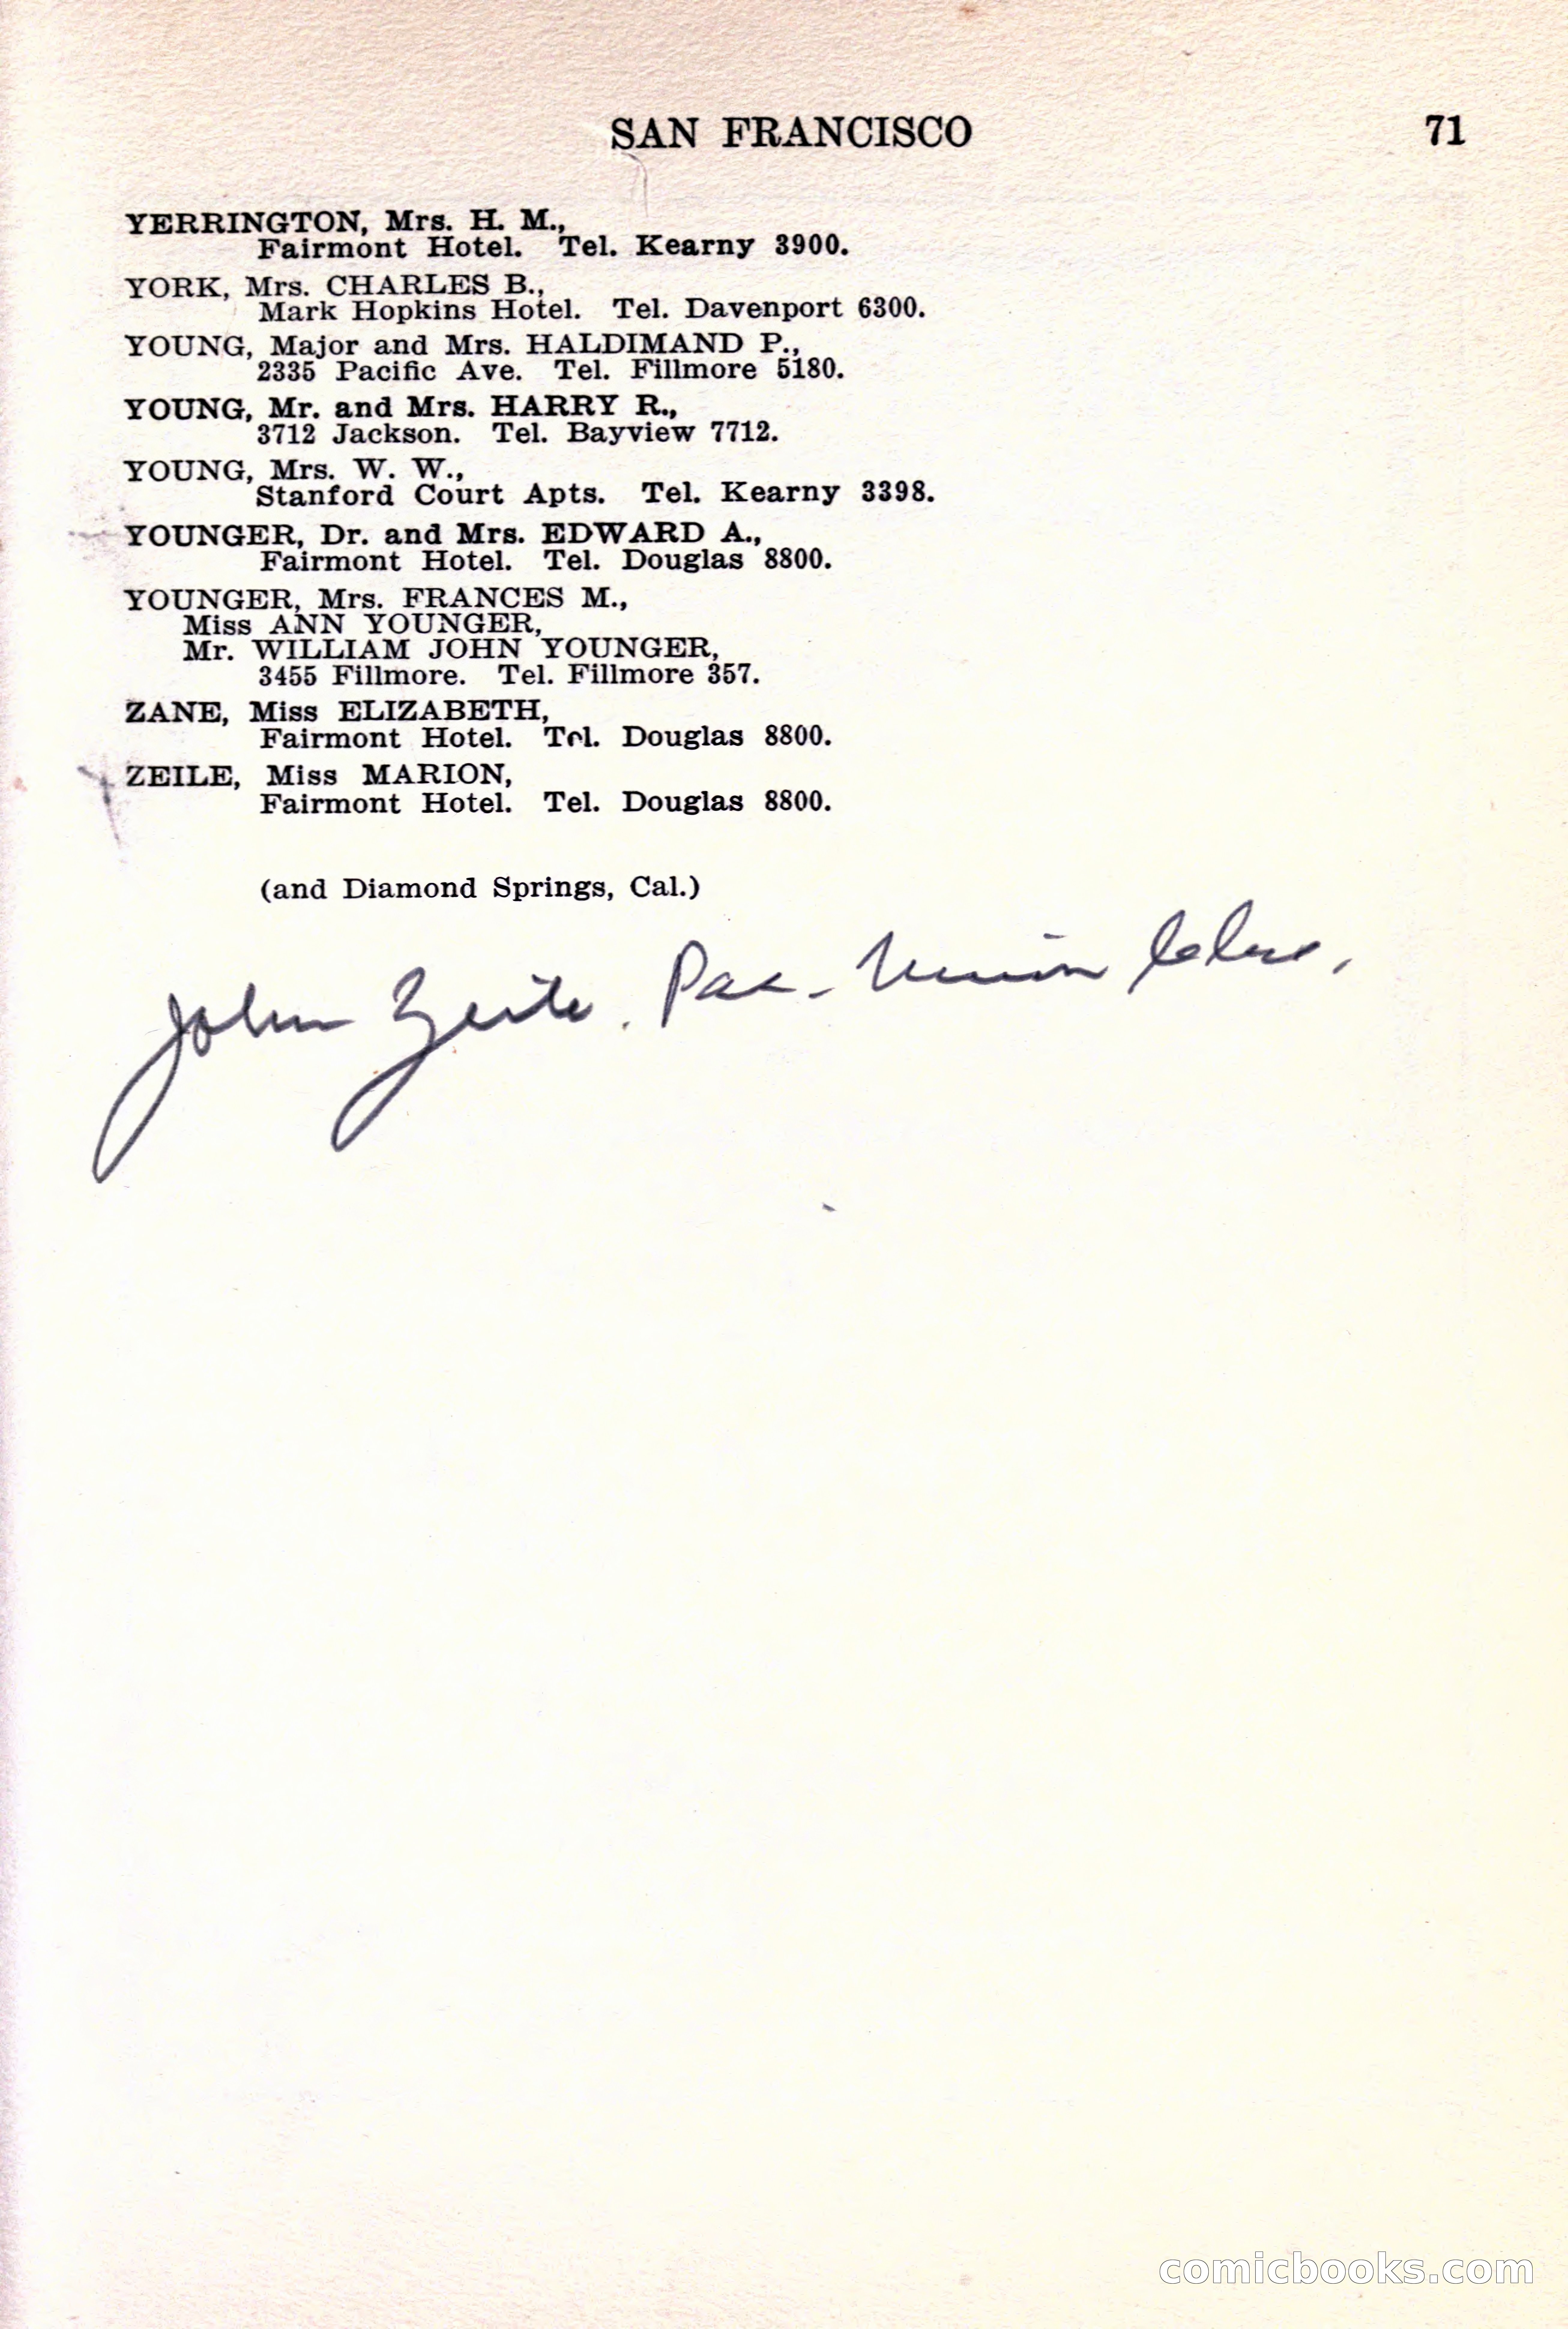 SAN FRANCISCO 71
YERRINGTON, Mrs. H. M.,
Fairmont Hotel. Tel. Kearny 3900.
YORK, Mrs. CHARLES B.,
Mark Hopkins Hotel. Tel. Davenport 6300.
YOUNG, Major and Mrs. HALDIMAND P.,
2335 Pacific Ave. Tel. Fillmore 5180.
YOUNG, Mr. and Mrs. HARRY R.,
3712 Jackson. Tel. Bayview 7712.
YOUNG, Mrs. W. W.,
Stanford Court Apts. Tel. Kearny 3398.
YOUNGER, Dr. and Mrs. EDWARD A.,
Fairmont Hotel. Tel. Douglas 8800.
YOUNGER, Mrs. FRANCES M.,
Miss ANN YOUNGER,
Mr. WILLIAM JOHN YOUNGER,
3455 Fillmore. Tel. Fillmore 357.
ZANE, Miss ELIZABETH,
Fairmont Hotel. Tel. Douglas 8800.
ZEILE, Miss MARION,
Fairmont Hotel. Tel. Douglas 8800.
(and Diamond Springs, Cal.)
John Zeile. Pac. Union Club.
comicbooks.com